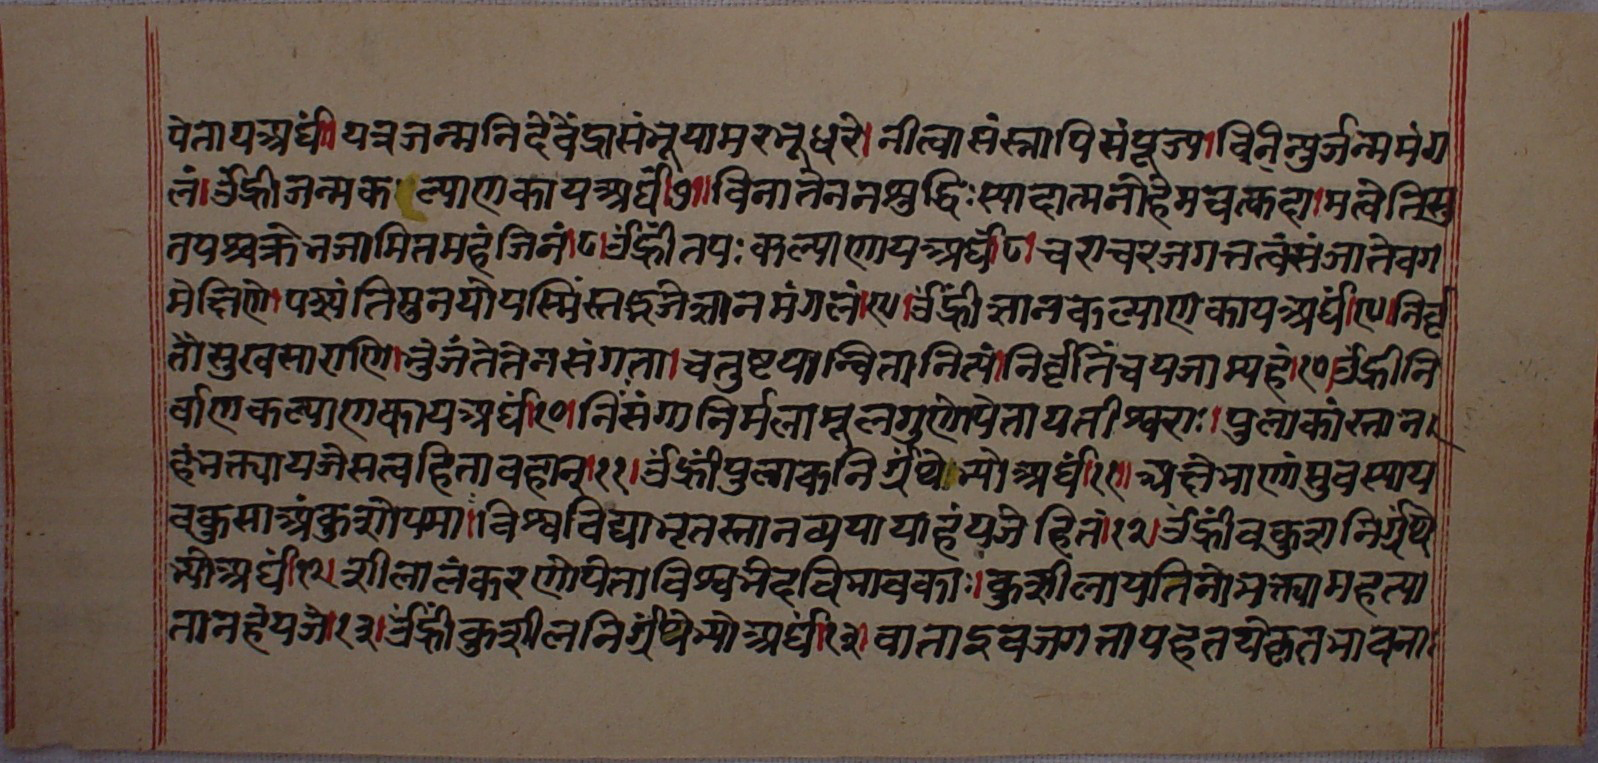 पेताय अर्घं। यत्र जन्मनि देवेंद्रा संभूया मरभूधरे। नीत्वा संस्नापि संपूज्य। विनेन्पुर्जन्ममंग
लं। ॐ ह्रीं जन्मकल्याणकाय अर्घं। ७। विना तेन न शुद्धिः स्यादात्मनो हेमवत्कदा। मत्वेति सु
तपश्चक्रे यजामि तमहं जिनं। ८। ॐ ह्रीं तपःकल्याणाय अर्घं। ८। चराचरजगत्तत्वं संजातेवग
मेक्षिणे। पश्यंति मुनयो यस्मिंस्तद्यजे ज्ञानमंगलं। ९। ॐ ह्रीं ज्ञानकल्याणकाय अर्घं। ९। निर्वृ
तौ सुखसाराणि। भुंजंते तेन संगता। चतुष्टयान्विता नित्यं। निर्वृतिं च यजाम्यहं। १०। ॐ ह्रीं नि
र्वाणकल्याणकाय अर्घं। १०। निसंगा निर्मला मूलगुणोपेता यतीश्वराः। पुलाकांस्तान
हं भक्त्या यजे सत्वहितावहान्। ११। ॐ ह्रीं पुलाकनिर्ग्रंथेभ्यो अर्घं। ११।
वकुसा अंकुशोपमा। विश्वविद्या यजे हितं। १२। ॐ ह्रीं वकुशनिर्ग्रंथे
भ्यो अर्घं। १२। शीलालंकरणोपेता विश्वभेदविभावकाः। कुशीला यतिनो भक्त्या महत्या
तानहं यजे। १३। ॐ ह्रीं कुशीलनिर्ग्रंथेभ्यो अर्घं। १३। वाता इव जगत्तापहतये कृतभावना।